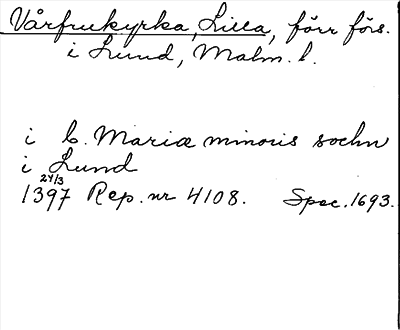 Vårfrukyrka, Lilla, förr förs.
i Lund, Malm. l.
i b. Mariæ minoris sochn
i Lund
24/3
1397 Rep. nr 4108. Spec. 1693.